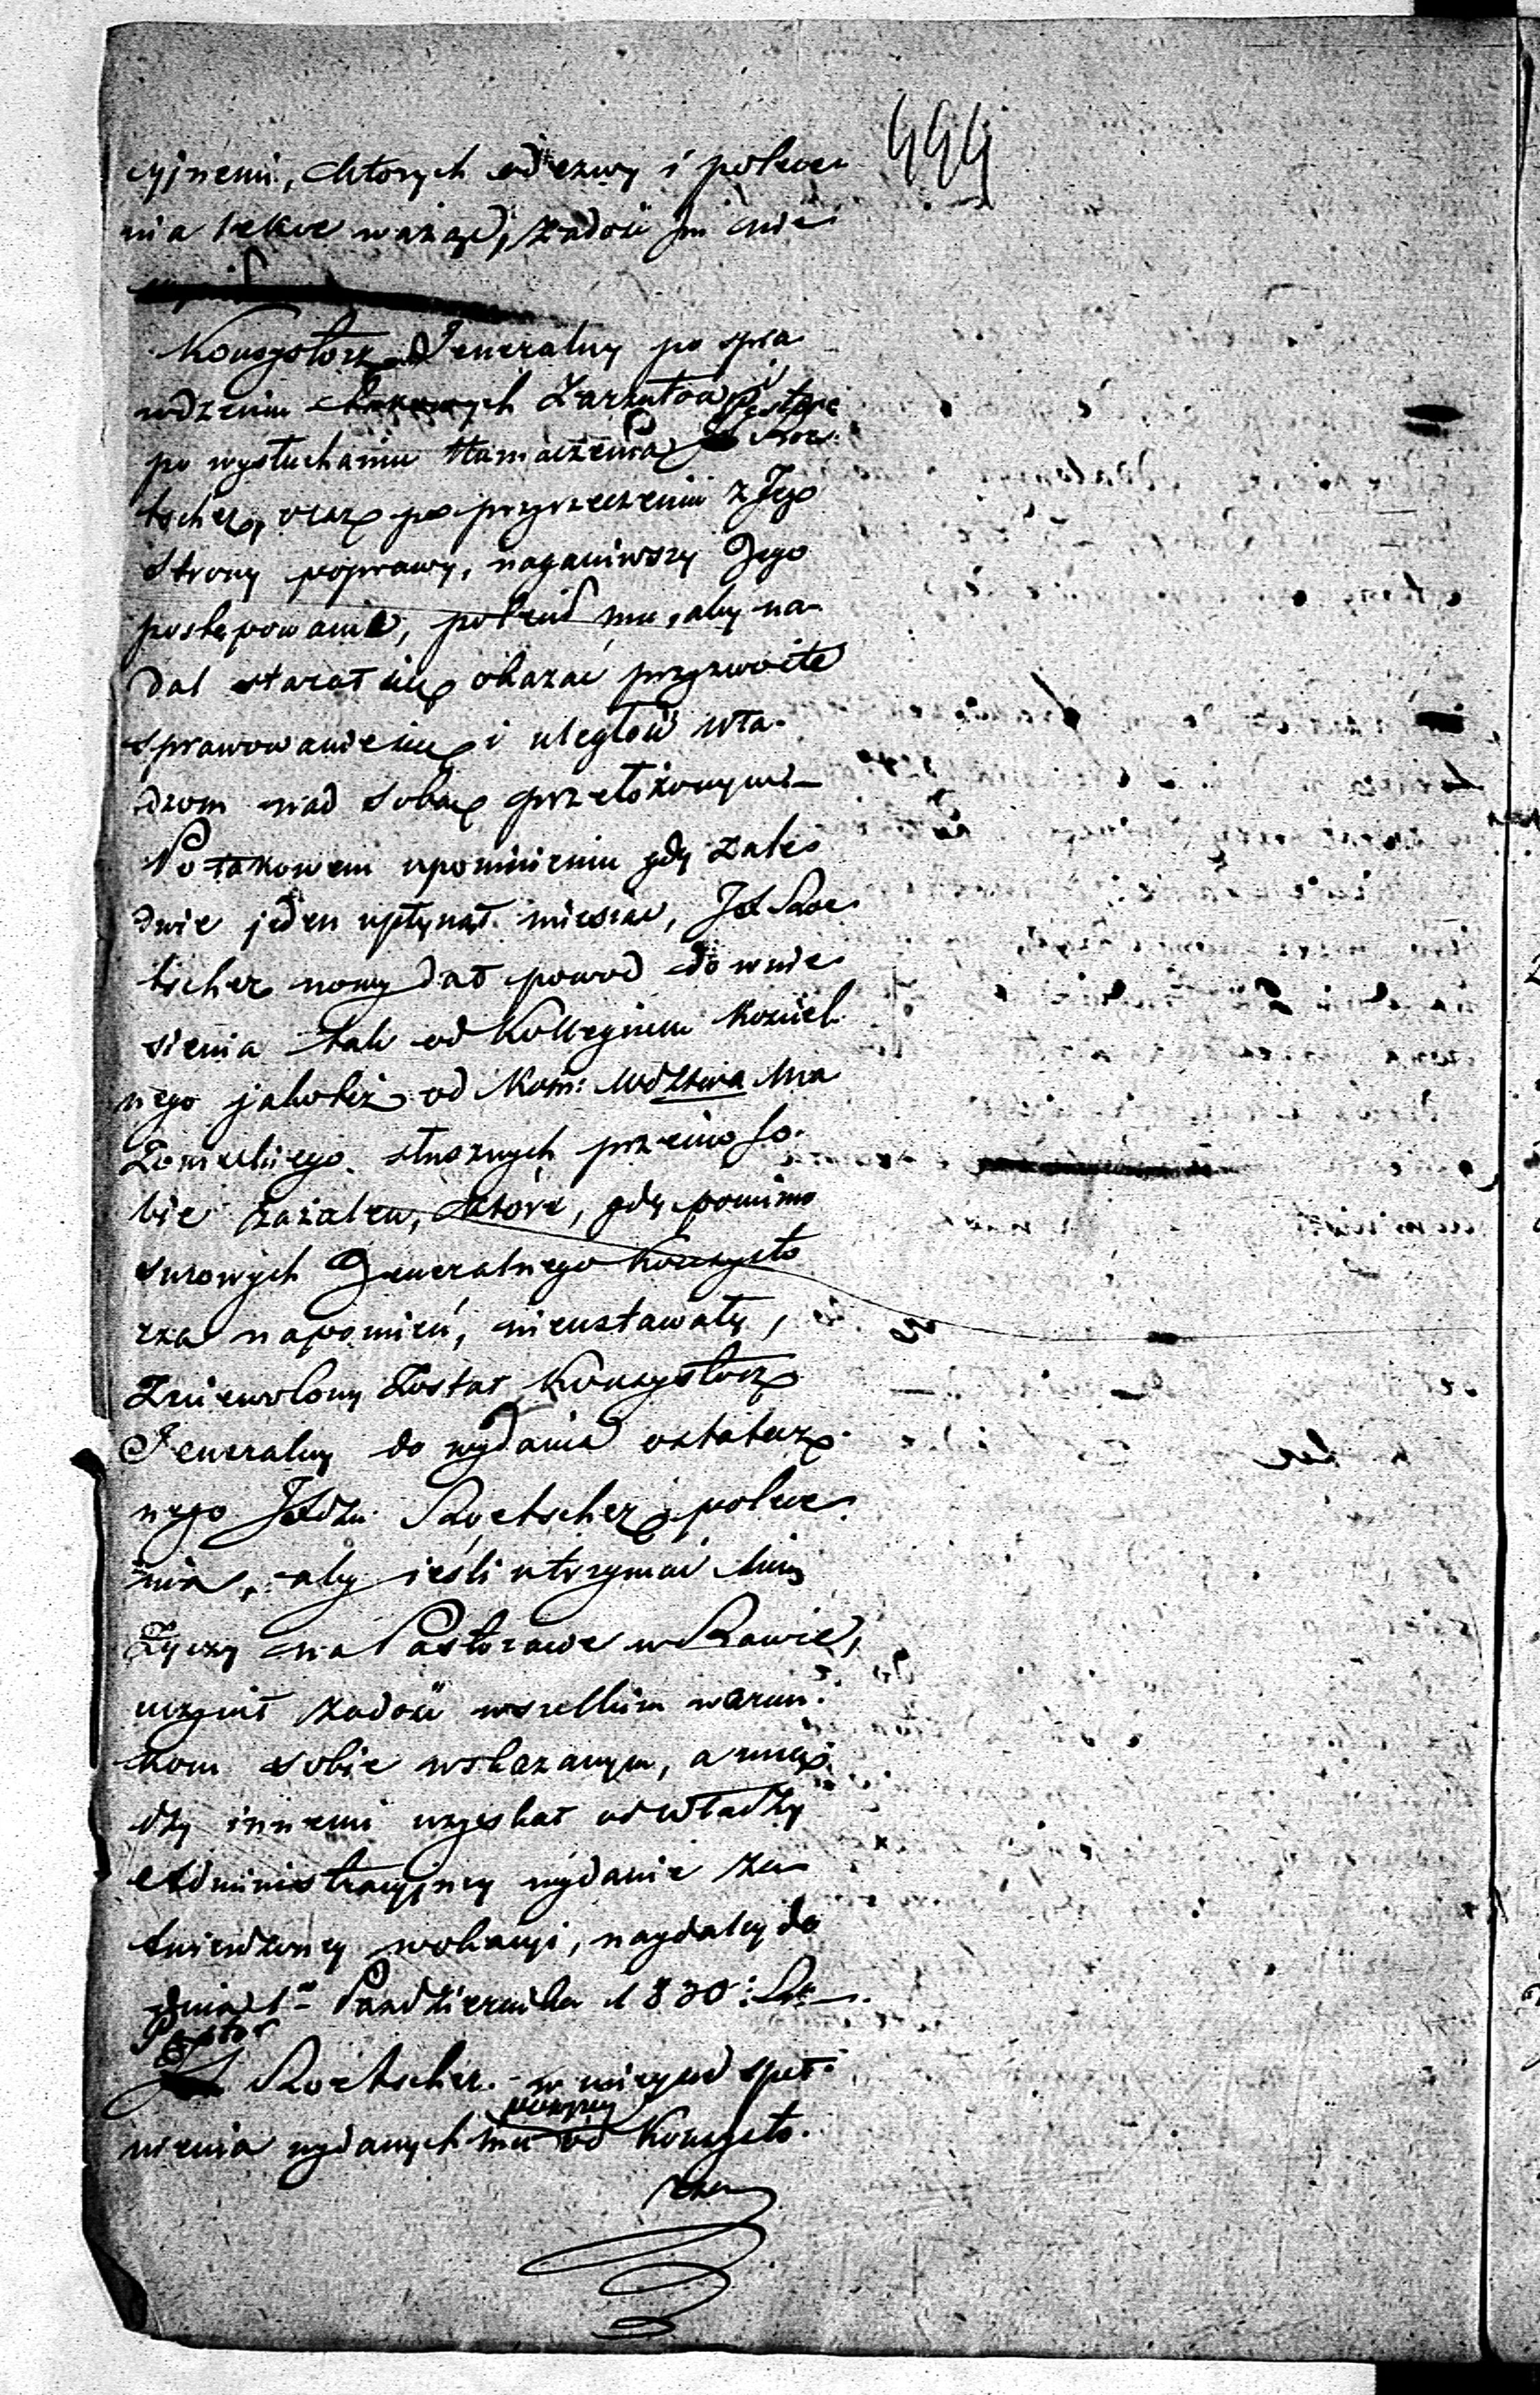 494
cyjnemi, których odezwy i polece
nia lekce ważąc, zadość im nie
Konsystorz Jeneralny po spra
wdzeniu zarzutów i
po wysłuchaniu tłomaczenia Pastora Roe
tscher, oraz po przyrzeczeniu z Jego
strony poprawy, naganiwszy Jego
postępowanie, polecił mu, aby na
dal starał się okazać przyzwoite
sprawowanie się i uległość wła
dzom nad sobą przełożonym –
Po takowem upomnieniu gdy zale
dwie jeden upłynął miesiąc, JX Roe
tscher nowy dał powod do wnie
sienia tak od Kollegium Kościel
nego jakoteż od Kom: Wdztwa Ma
zowieckiego słusznych przeciw so
bie zażaleń, które, gdy pomimo
surowych Generalnego Konsysto
rza napomień, nieustawały,
Zniewolony został Konsystorz
Jeneralny do wydania ostatecz
nego JXdzu Roetscher polece
nia, aby jeśli utrzymać się
życzy na Pastorawie w Rawie,
uczynił zadość wszelkim warun
kom sobie wskazanym, a mię
dzy innemi uzyskał od Władzy
Administracyjney wydanie za
twierdzoney wokacyi, naydaley do
dnia 1º Października 1830: Rt
Pastor
Roetscher w miejsce speł
nienia wydanych mu od Konsysto
rza